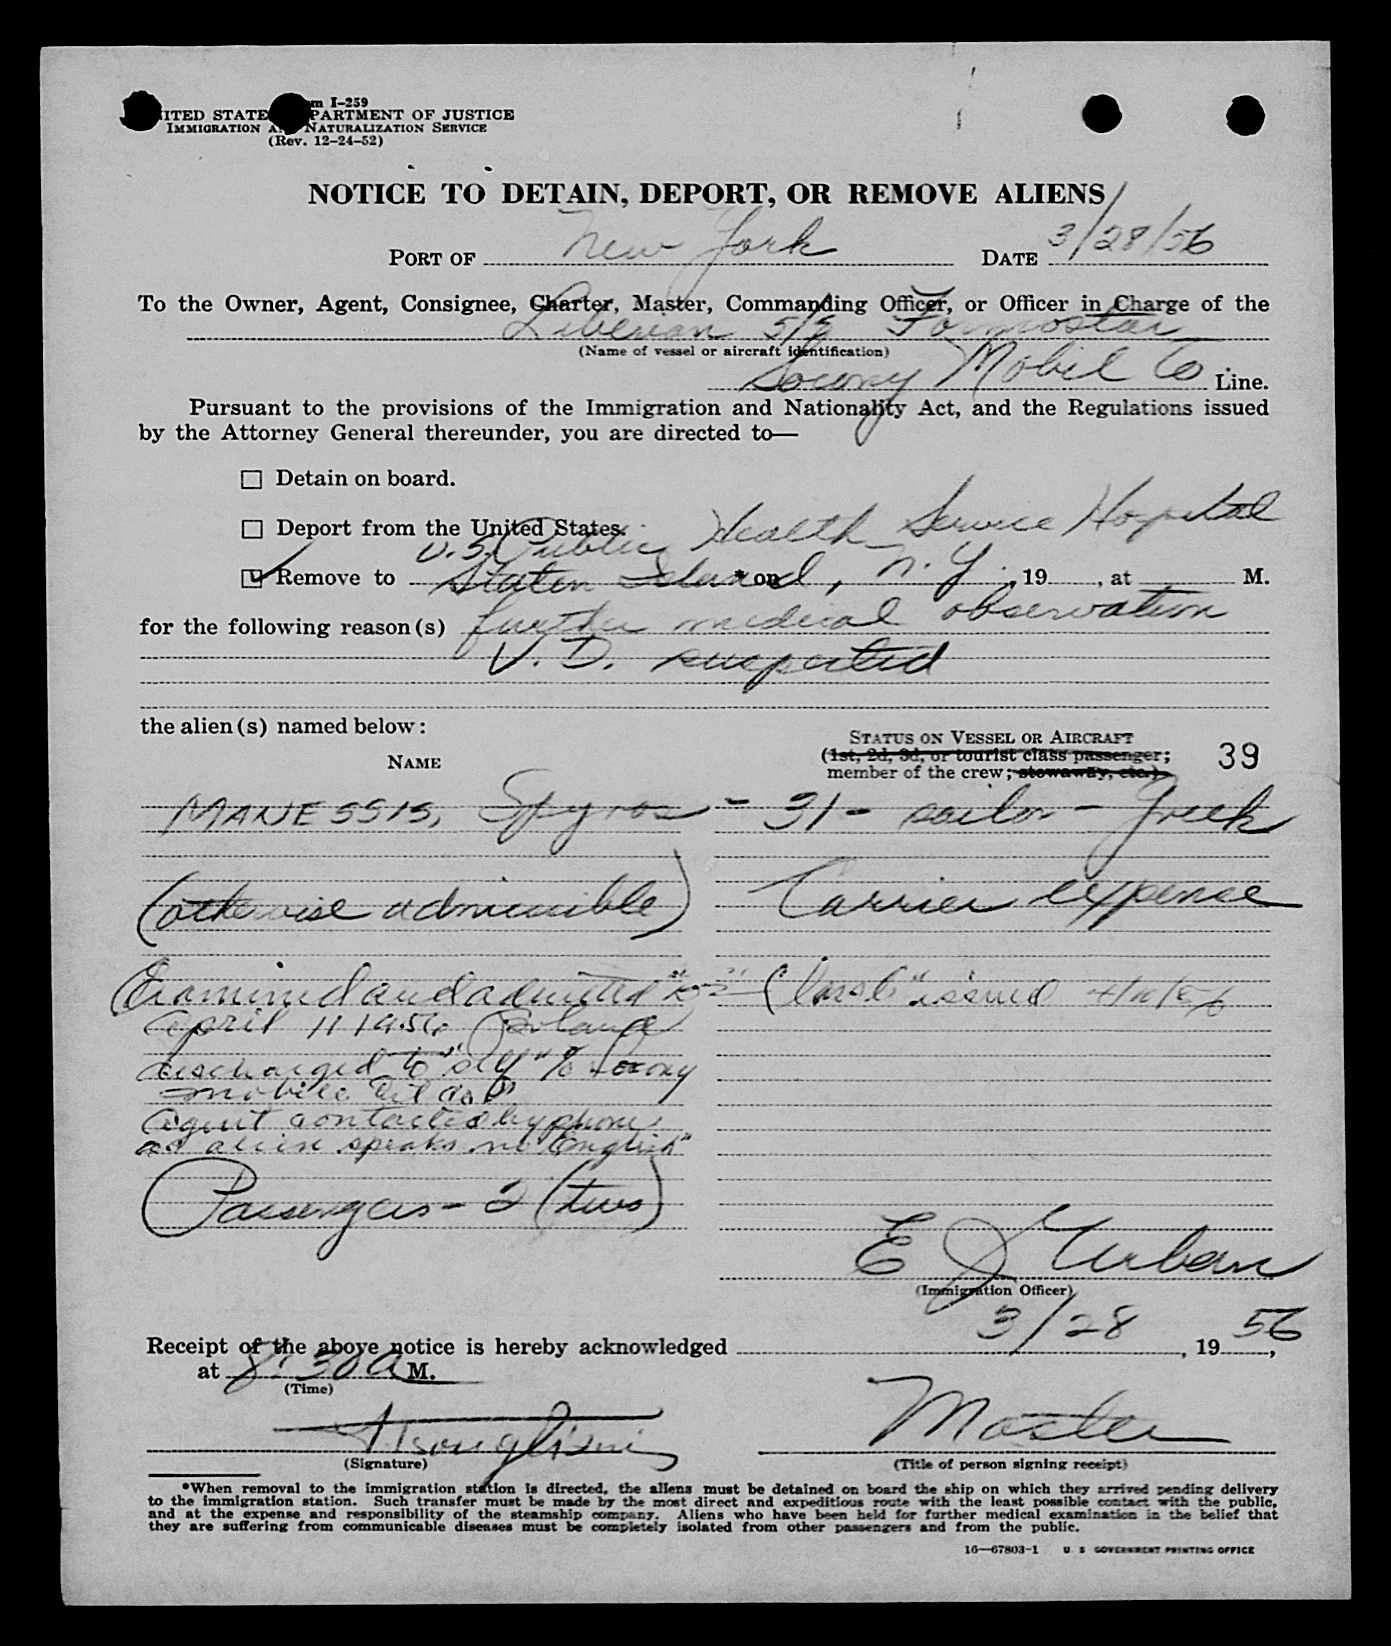 Form I-259
UNITED STATES DEPARTMENT OF JUSTICE
IMMIGRATION AND NATURALIZATION SERVICE
(Rev. 12-24-52)
NOTICE TO DETAIN, DEPORT, OR REMOVE ALIENS
PORT OF New York DATE 3/28/56
To the Owner, Agent, Consignee, Charter, Master, Commanding Officer, or Officer in Charge of the
Liberian S/S Formostar
(Name of vessel or aircraft identification)
Socony Mobil Co. Line.
Pursuant to the provisions of the Immigration and Nationality Act, and the Regulations issued
by the Attorney General thereunder, you are directed to—
☐ Detain on board.
☐ Deport from the United States.
U.S. Public Health Service Hospital
☑ Remove to Staten Island, N.Y. * on , 19 , at M.
for the following reason(s) further medical observation
V.D. suspected
the alien(s) named below:
STATUS ON VESSEL OR AIRCRAFT
(1st, 2d, 3d, or tourist class passenger;
NAME member of the crew; stowaway, etc.) 39
MANESSIS, Spyros - 31 - sailor - Greek
(otherwise admissible) Carrier expense
Examined and admitted issued
April 11 1956
discharged to "self" % Socony
Mobile Oil Co.
Agent contacted by phone
as alien speaks no English"
Passengers - 2 (two)
E J Urban
(Immigration Officer)
Receipt of the above notice is hereby acknowledged 3/28, 19 56,
at 8:30 A M.
(Time)
Master
(Signature) (Title of person signing receipt)
*When removal to the immigration station is directed, the aliens must be detained on board the ship on which they arrived pending delivery
to the immigration station. Such transfer must be made by the most direct and expeditious route with the least possible contact with the public,
and at the expense and responsibility of the steamship company. Aliens who have been held for further medical examination in the belief that
they are suffering from communicable diseases must be completely isolated from other passengers and from the public.
16—67803-1 U. S. GOVERNMENT PRINTING OFFICE